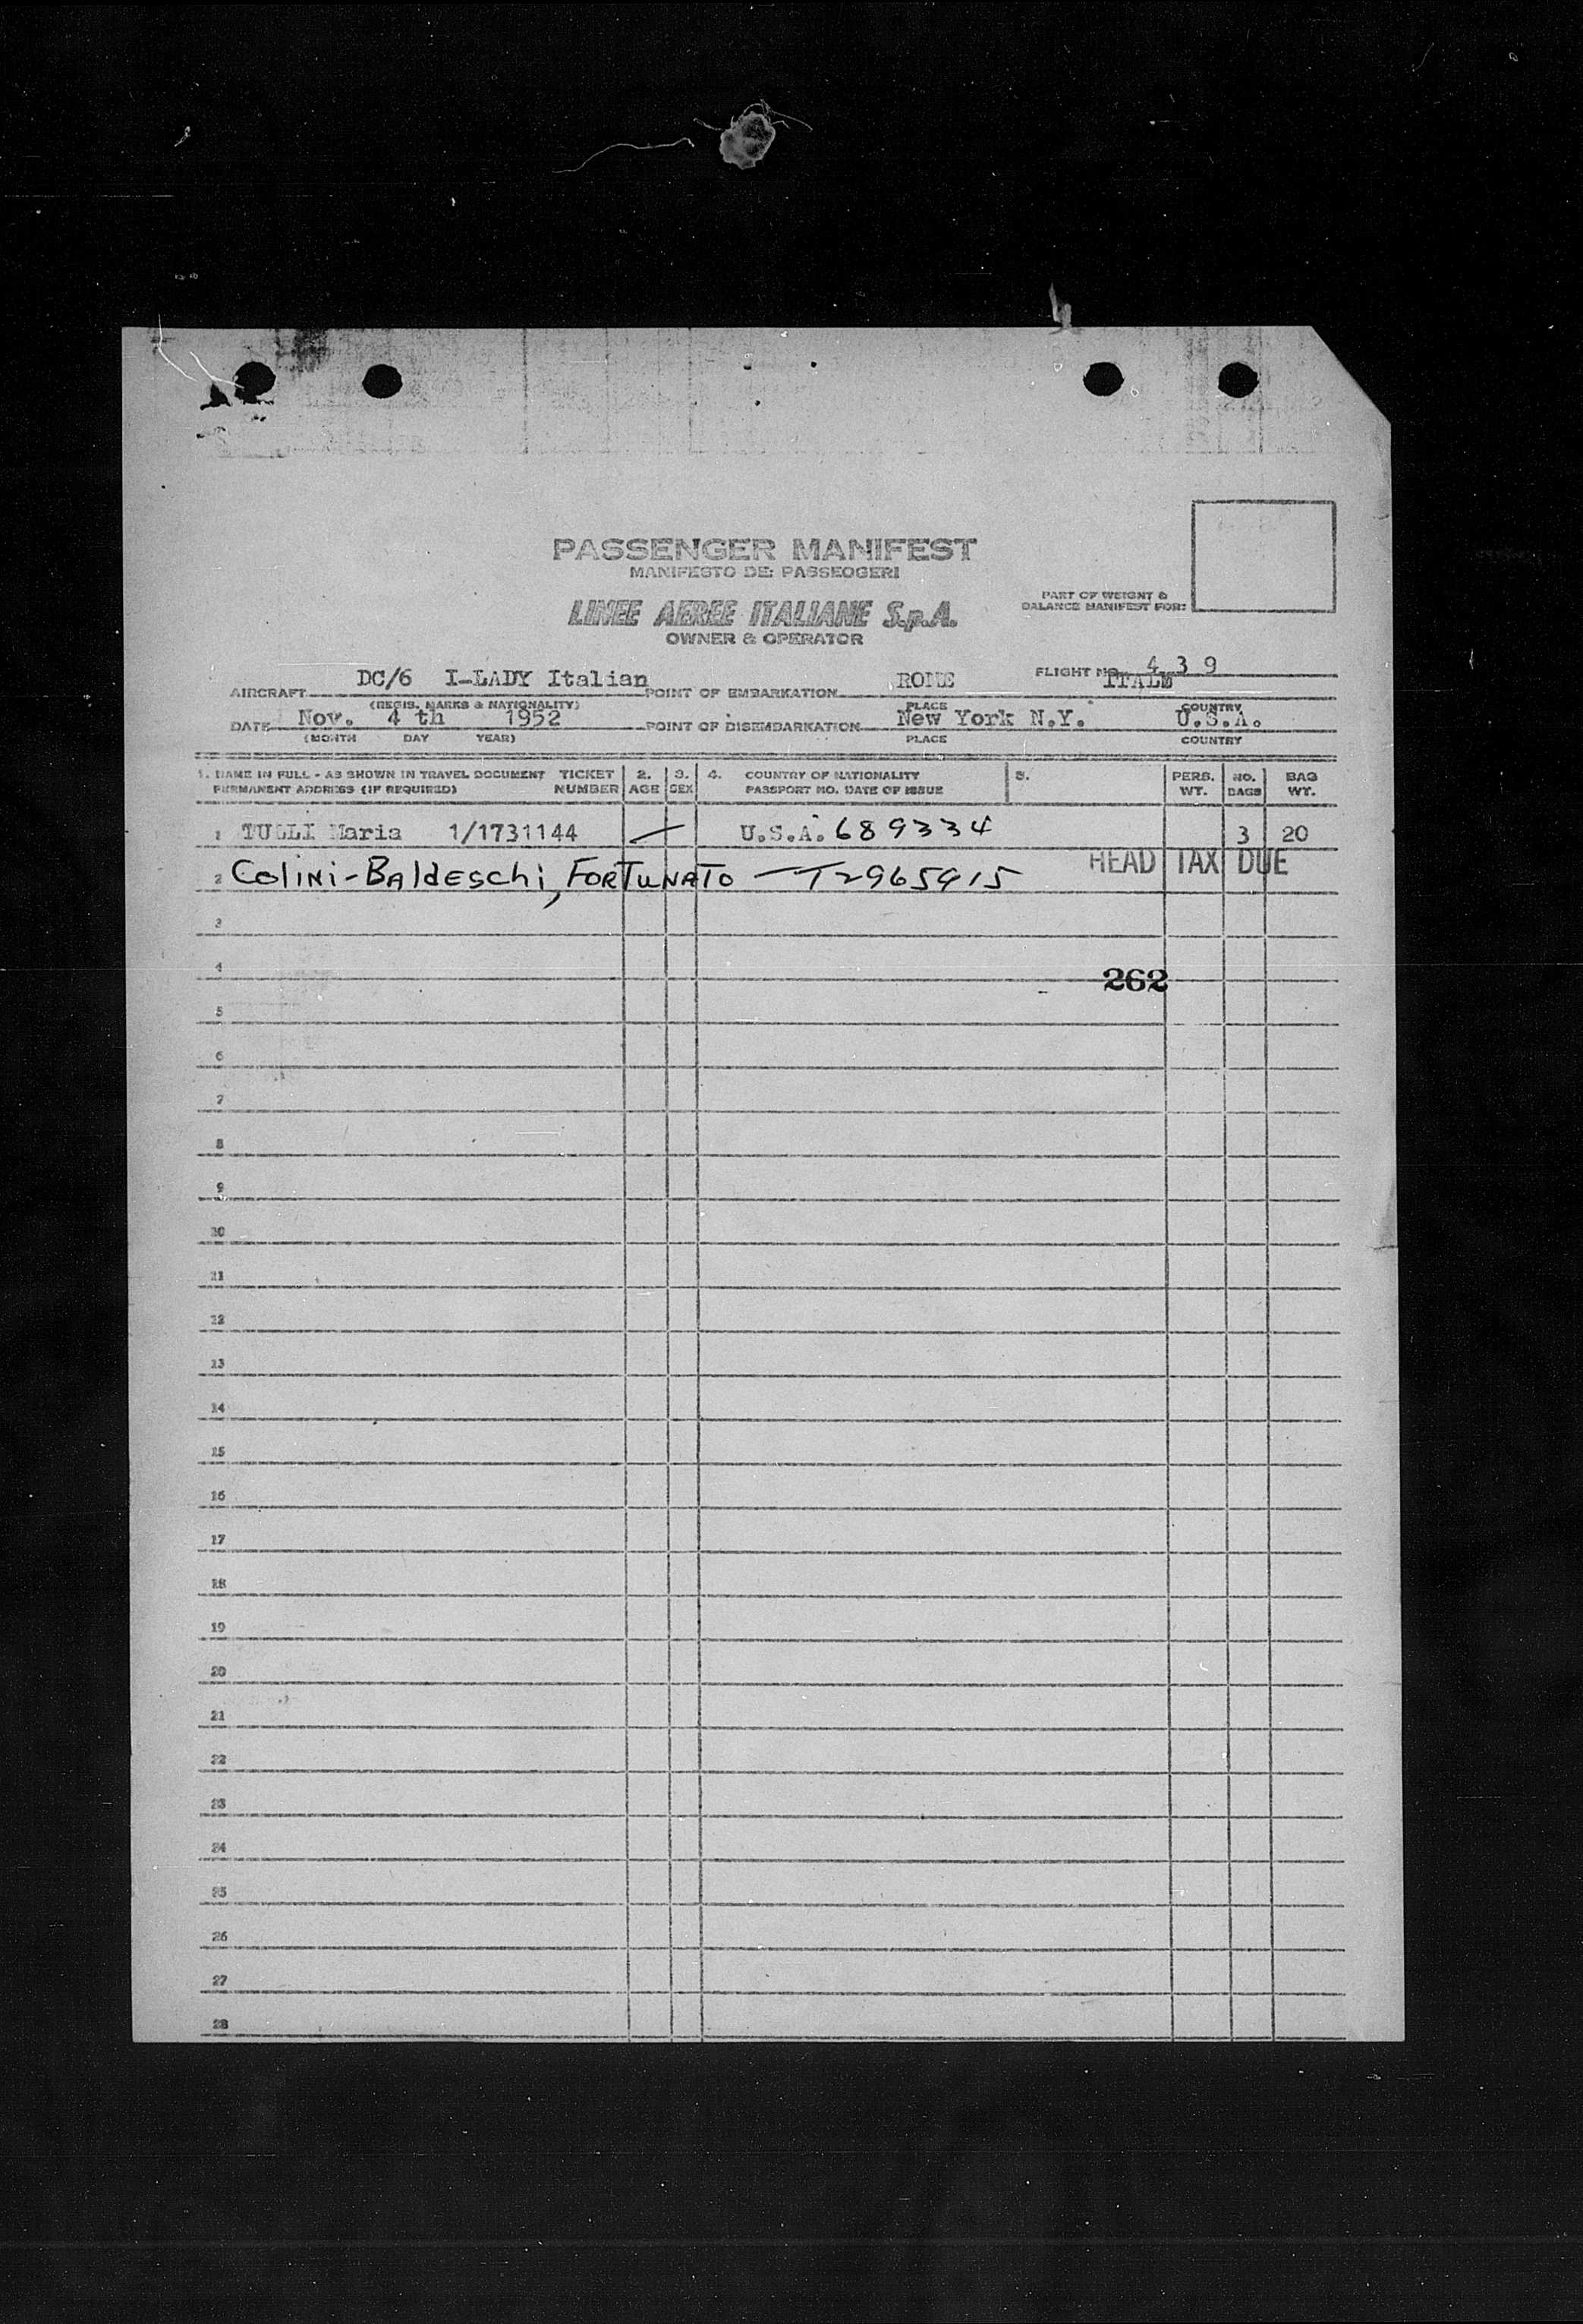 PASSENGER MANIFEST
MANIFESTO DEI PASSEGGERI
LINEE AEREE ITALIANE S.p.A.
OWNER & OPERATOR
PART OF WEIGHT &
BALANCE MANIFEST FOR:
AIRCRAFT DC/6 I-LADY Italian POINT OF EMBARKATION ROME FLIGHT NO. 4 3 9
ITALY
(REGIS. MARKS & NATIONALITY) PLACE COUNTRY
DATE Nov. 4 th 1952 POINT OF DISEMBARKATION New York N.Y. U.S.A.
(MONTH DAY YEAR) PLACE COUNTRY
1. NAME IN FULL - AS SHOWN IN TRAVEL DOCUMENT TICKET 2. 3. 4. COUNTRY OF NATIONALITY 5. PERS. NO. BAG
PERMANENT ADDRESS (IF REQUIRED) NUMBER AGE SEX PASSPORT NO. DATE OF ISSUE WT. BAGS WT.
1 TULLI Maria 1/1731144 — U.S.A. 689334 3 20
HEAD TAX DUE
2 Colini-Baldeschi, FORTUNATO — T2965915
3
4
262
5
6
7
8
9
10
11
12
13
14
15
16
17
18
19
20
21
22
23
24
25
26
27
28